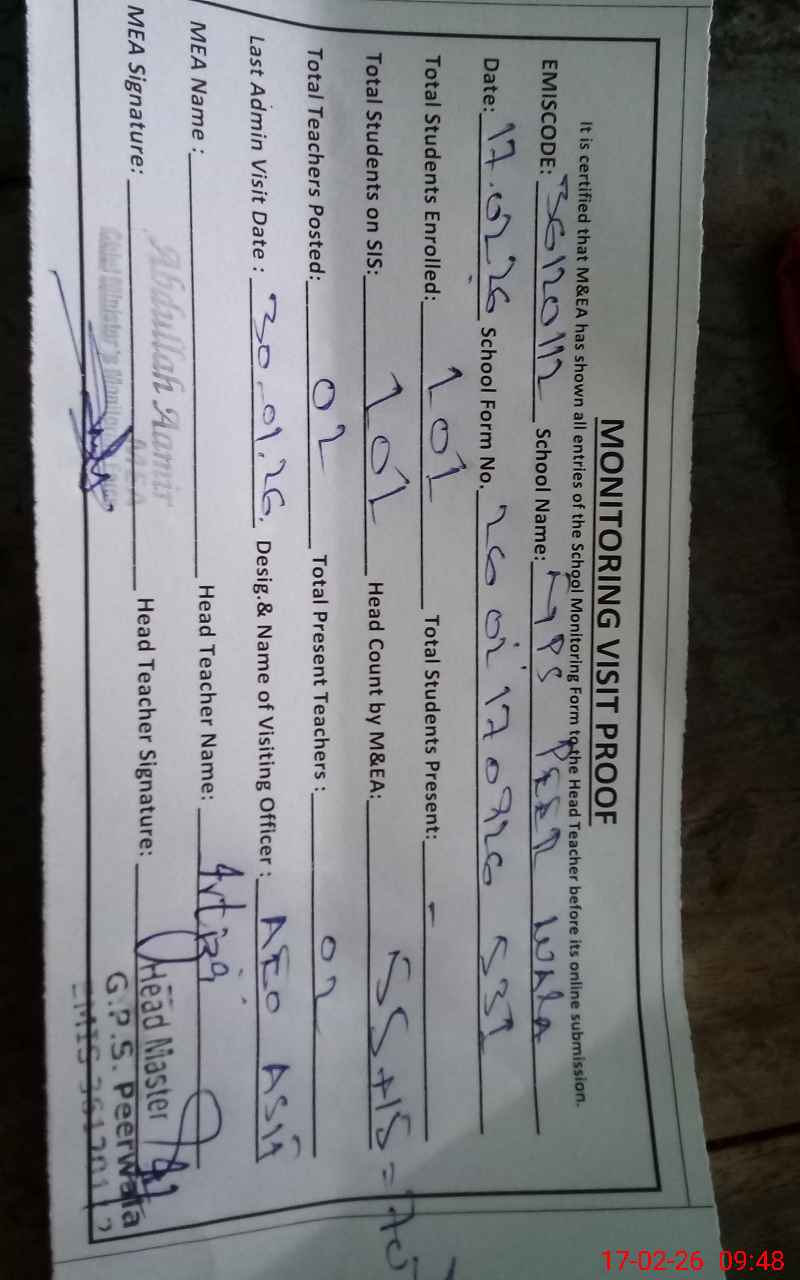 MONITORING VISIT PROOF
It is certified that M&EA has shown all entries of the School Monitoring Form to the Head Teacher before its online submission.
EMISCODE: 36120112 School Name: GPS PEER WALA
Date: 17.02.26 School Form No. 26 02 17 0926 531
Total Students Enrolled: 101 Total Students Present: -
Total Students on SIS: 101 Head Count by M&EA: 55+15=70
Total Teachers Posted: 02 Total Present Teachers : 02
Last Admin Visit Date : 30-01.26. Desig.& Name of Visiting Officer : AEO ASIF
MEA Name : Abdullah Aamir Head Teacher Name:
MEA
MEA Signature: Head Teacher Signature:
Head Master
G.P.S. Peerwala
17-02-26 09:48